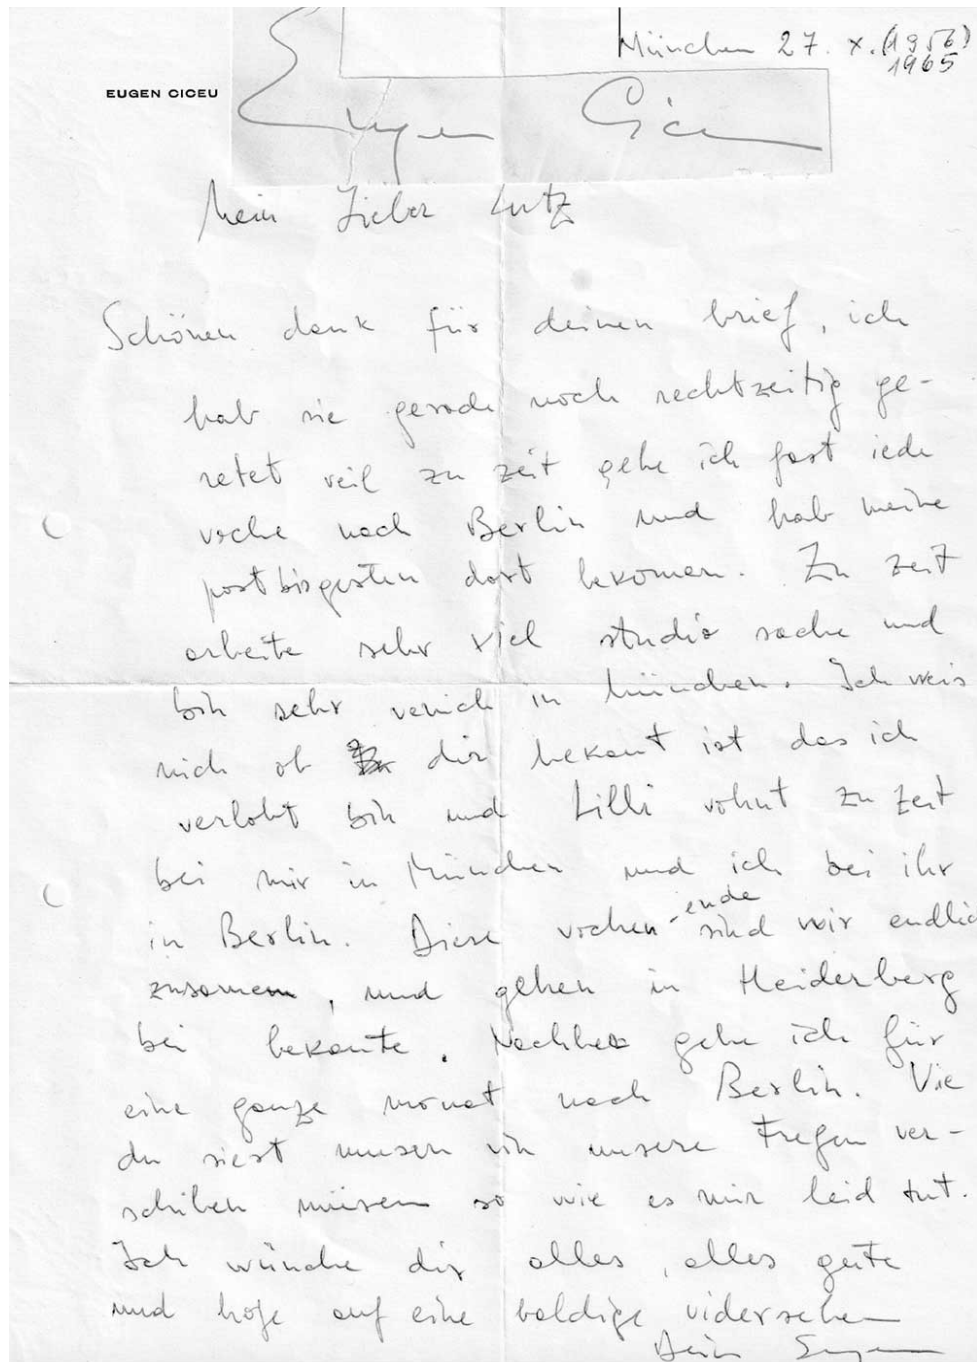 München 27. X. (1956)
1965
EUGEN CICEU
Eugen Cice
Mein Lieber Lutz
Schönen dank für deinen brief, ich
hab sie gerade noch rechtzeitig ge-
retet veil zu zeit gehe ich fast iede
voche nach Berlin und hab meine
post bisgestern dort bekomen. Zu zeit
arbeite sehr viel studio sache und
bin sehr venich in München. Ich weis
nich ob dir bekant ist das ich
verlobt bin und Lilli vohnt zu zeit
bei mir in München und ich bei ihr
in Berlin. Diese vochen-ende sind wir endlic
zusamen, und gehen in Heiderberg
bei bekante. Nachher gehe ich für
eine ganze monat nach Berlin. Vie
du siest musen vir unsere Fregen ver-
schiben müsen so wie es mir leid tut.
Ich wünche dir alles, alles gute
und hofe auf eine baldige vidersehen
Dein Eugen